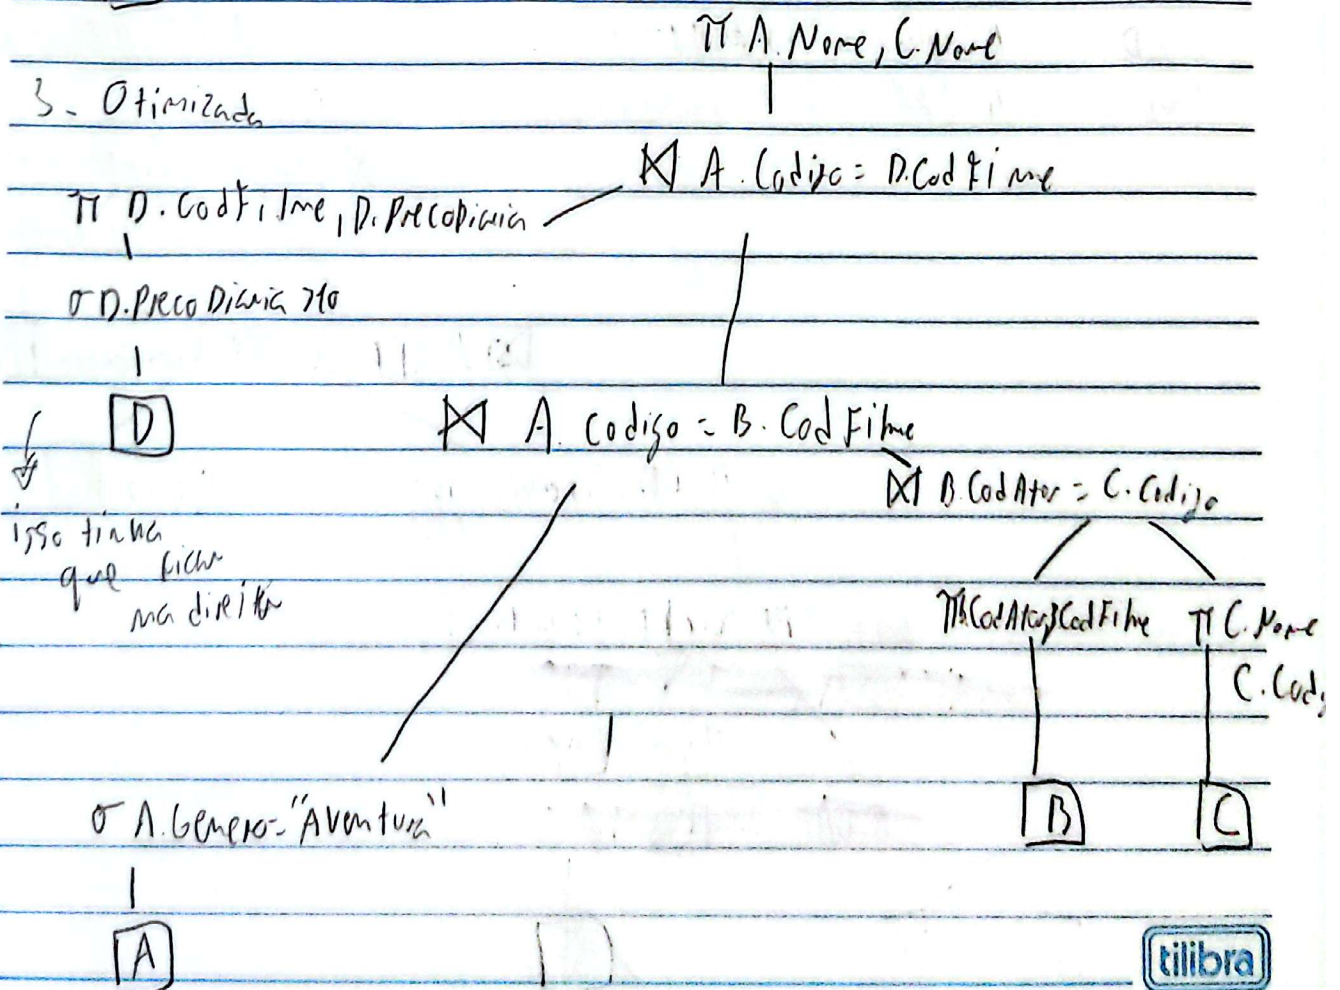 π A.Nome, C.Nome
3- Otimizada
⋈ A.Codigo = D.CodFilme
π D.CodFilme, D.PrecoDiaria
σ D.PrecoDiaria >10
D
⋈ A.Codigo = B.CodFilme
⋈ B.CodAtor = C.Codigo
isso tinha
que ficar
na direita
π B.CodAtor, B.CodFilme
π C.Nome
C.Cod
σ A.Genero="Aventura"
B
C
A
tilibra